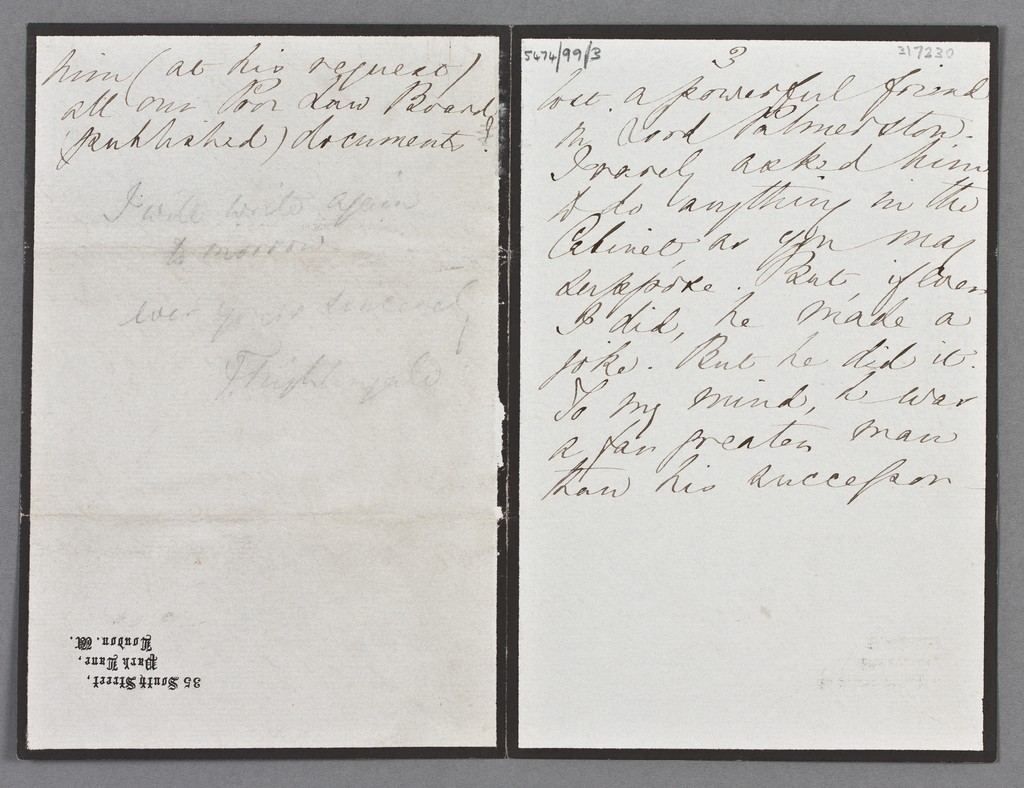 him (at his request)
all our Poor Law Board
(published) documents!
I will write again
to morrow
ever yours sincerely
F. Nightingale
35 South Street,
Park Lane,
London. W.
5474/99/3
317230
3
lost a powerful friend
in Lord Palmerston.
I rarely asked him
to do anything in the
Cabinet, as you may
suppose. But, if ever
I did, he made a
joke. But he did it.
To my mind, he was
a far greater man
than his successor